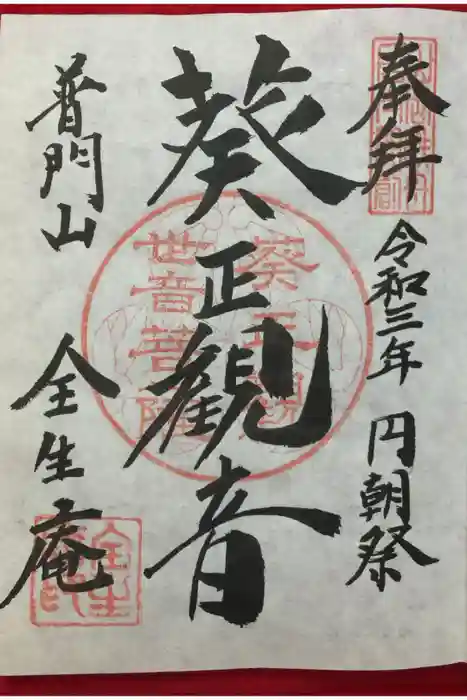 奉拝 令和三年 円朝祭
葵正観音
普門山 全生庵
葵正観
世音菩薩
全生
庵印